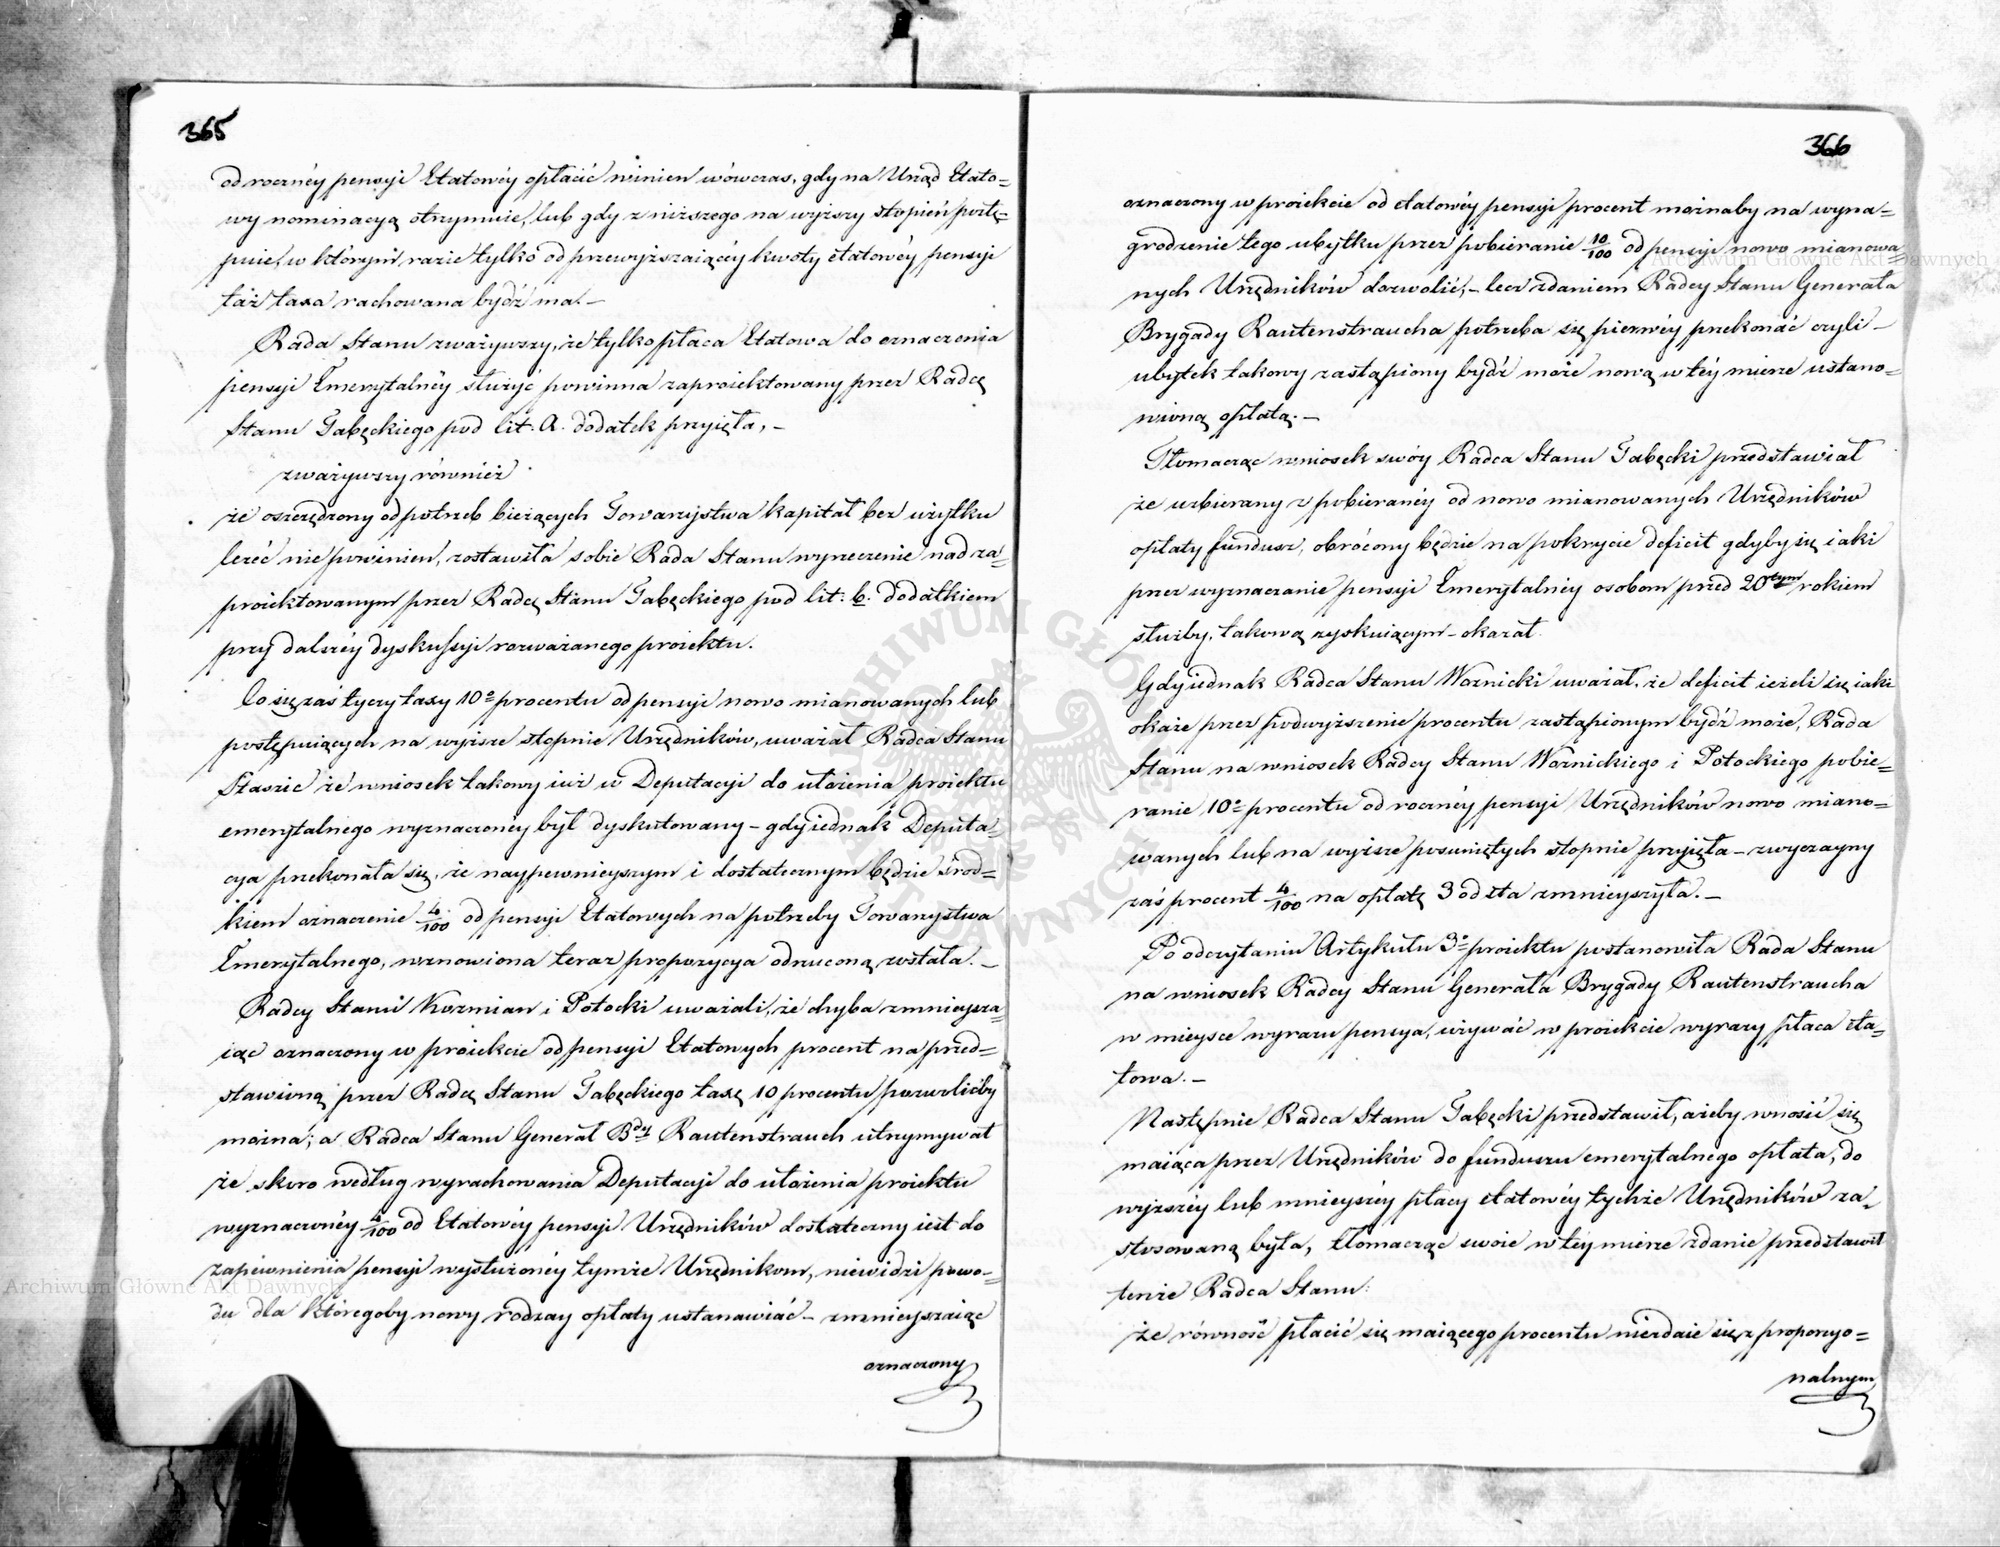 365
od roczney pensyi Etatowéy opłacić winien wówczas, gdy na Urząd Etato=
wy nominacyą otrzymuie, lub gdy z niższego na wyższy stopień postę=
puie, w którym razie tylko od przewyższaiącéy kwoty etatowéy pensyi
taż taxa rachowana bydź ma. –
Rada Stanu zważywszy, że tylko płaca Etatowa do oznaczenia
pensyi Emerytalnéy służyć powinna zaproiektowany przez Radcę
Stanu Gabęckiego pod lit. A. dodatek przyięła, –
zważywszy również
że oszczędzony od potrzeb bieżących Towarzystwa kapitał bez użytku
leżéć nie powinien, zostawiła sobie Rada Stanu wyrzeczenie nad za=
proiektowanym przez Radcę Stanu Gabęckiego pod lit: b. dodatkiem
przy dalszéy dyskussyi rozważanego proiektu.
Co się zaś tyczy taxy 10° procentu od pensyi nowo mianowanych lub
postępuiących na wyższe stopnie Urzędników, uważał Radca Stanu
Staszic że wniosek takowy iuż w Deputacyi do ułożenia proiektu
emerytalnego wyznaczonéy był dyskutowany – gdy iednak Deputa=
cya przekonała się, że naypewnieyszym i dostatecznym będzie środ=
kiem oznaczenie 4/100 od pensyi Etatowych na potrzeby Towarzystwa
Emerytalnego, wznowiona teraz propozycya odrzuconą została. –
Radcy Stanu Kozmian i Potocki uważali, że chyba zmnieysza=
iąc oznaczony w proiekcie od pensyi Etatowych procent na przed=
stawioną przez Radcę Stanu Gabęckiego taxę 10 procentu pozwolićby
można; a Radca Stanu Generał Bdy Rautenstrauch utrzymywał
że skoro według wyrachowania Deputacyi do ułożenia proiektu
wyznaczonéy 4/100 od Etatowéy pensyi Urzędników dostateczny iest do
zapewnienia pensyi wysłużonéy tymże Urzędnikom, niewidzi powo=
du dla któregoby nowy rodzay opłaty ustanawiać – zmnieyszaiąc
oznaczony
366
oznaczony w proiekcie od etatowéy pensyi procent możnaby na wyna=
grodzenie tego ubytku przez pobieranie 10/100 od pensyi nowo mianowa
nych Urzędników dozwolić, – lecz zdaniem Radcy Stanu Generała
Brygady Rautenstraucha potrzeba się pierwéy przekonać czyli –
ubytek takowy zastąpiony bydź może nową w téy mierze ustano=
wioną opłatą. –
Tłomacząc wniosek swóy Radca Stanu Gabęcki przedstawiał
że uzbierany z pobieranéy od nowo mianowanych Urzędników
opłaty fundusz, obrócony będzie na pokrycie deficit gdyby się iaki
przez wyznaczanie pensyi Emerytalnéy osobom przed 20tym rokiem
służby, takową zyskuiącym – okazał.
Gdy iednak Radca Stanu Woznicki uważał, że deficit ieżeli się iaki
okaże przez podwyższenie procentu zastąpionym bydź może, Rada
Stanu na wniosek Radcy Stanu Woźnickiego i Potockiego pobie=
ranie 10° procentu od rocznéy pensyi Urzędników nowo miano=
wanych lub na wyższe posuniętych stopnie przyięła – zwyczayny
zaś procent 4/100 na opłatę 3 od sta zmnieyszyła. –
Po odczytaniu Artykułu 3° proiektu postanowiła Rada Stanu
na wniosek Radcy Stanu Generała Brygady Rautenstraucha
w mieysce wyrazu pensya, używać w proiekcie wyrazy płaca eta=
towa. –
Następnie Radca Stanu Gabęcki przedstawił, ażeby wnosić się
maiąca przez Urzędników do funduszu emerytalnego opłata, do
wyższéy lub mnieyszéy płacy etatowéy tychże Urzędników za=
stosowaną była, tłomacząc swoie w téy mierze zdanie przedstawił
tenże Radca Stanu:
że równość płacić się maiącego procentu niezdaie się z proporcyo=
nalnym
Archiwum Główne Akt Dawnych
Archiwum Główne Akt Dawnych
ARCHIWUM GŁÓWNE AKT DAWNYCH